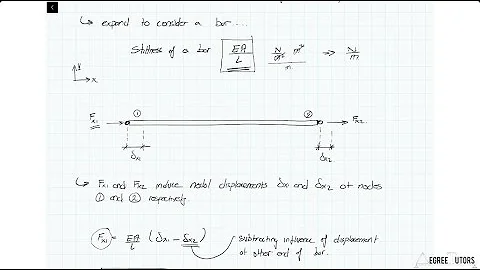 ↳ expand to consider a bar....
Stiffness of a bar EA/L N/m² m²/m → N/m
y
x
Fx1 ① ② Fx2
δx1 δx2
↳ Fx1 and Fx2 induce nodal displacements δx1 and δx2 at nodes
① and ② respectively.
Fx1 = EA/L (δx1 - δx2) subtracting influence of displacement
at other end of bar.
DEGREE TUTORS